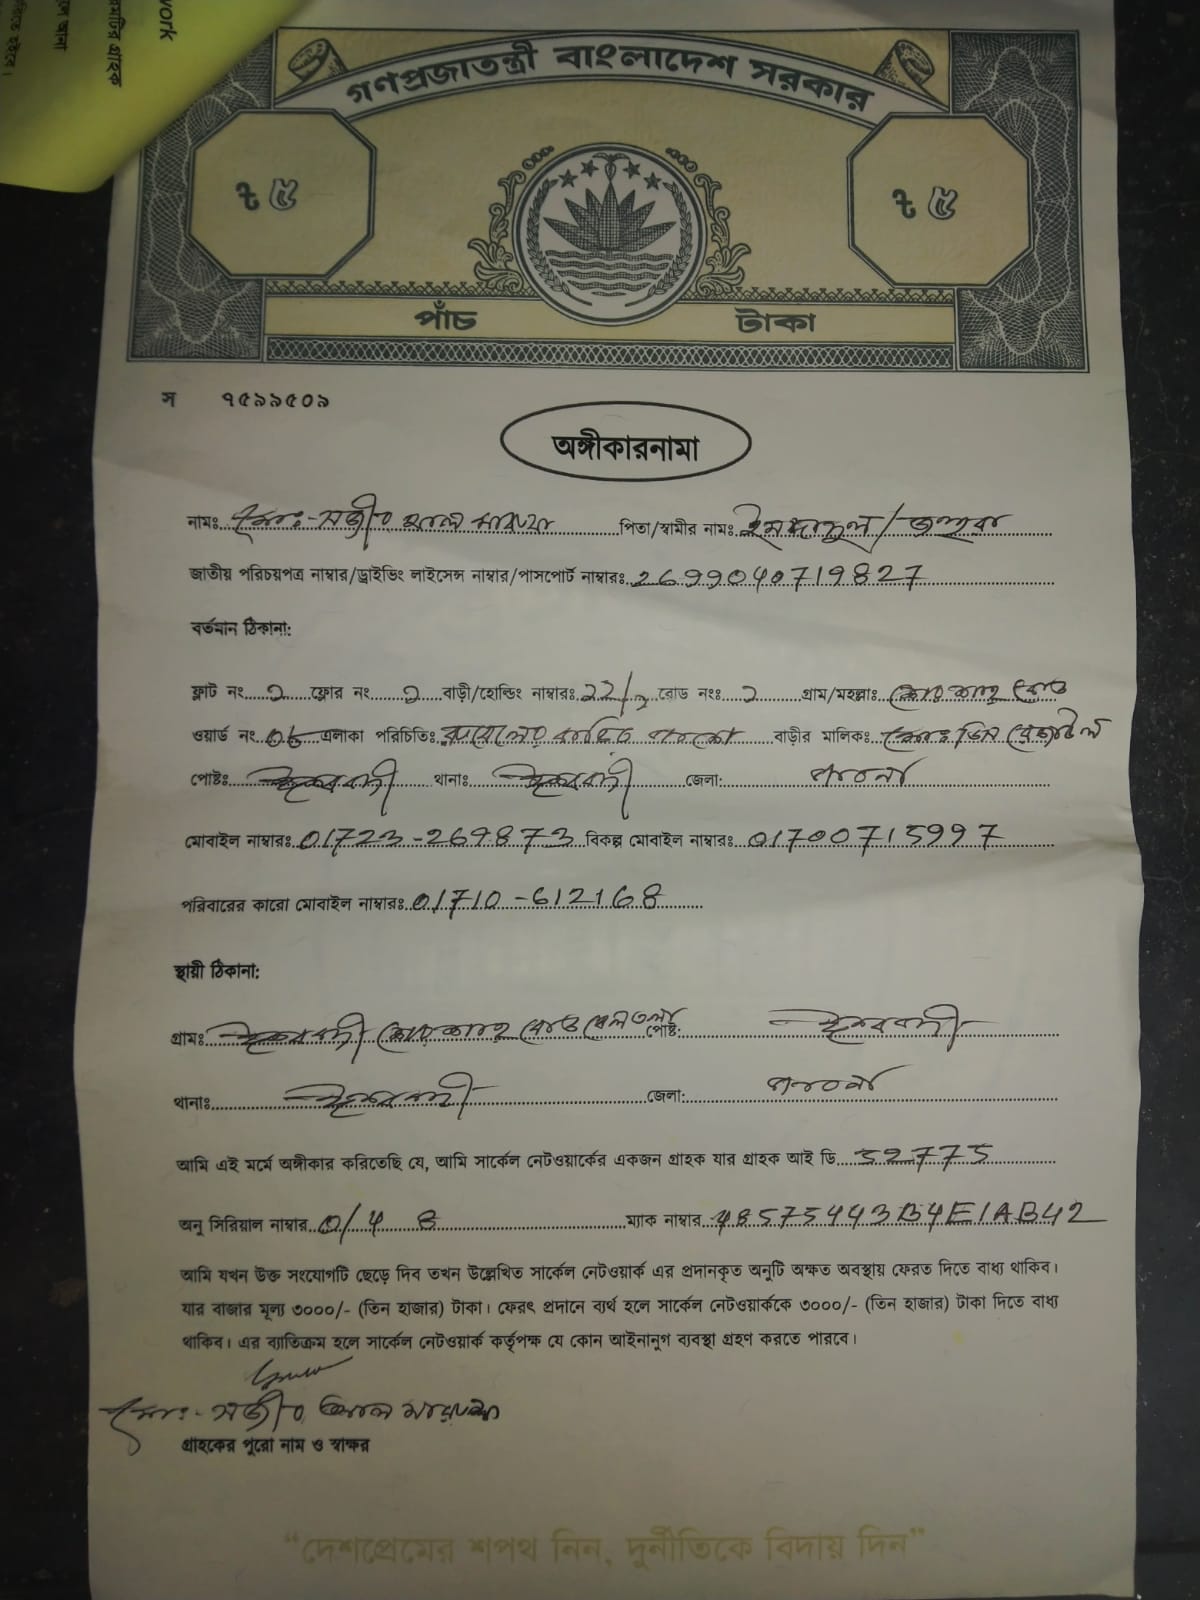 work
গণপ্রজাতন্ত্রী বাংলাদেশ সরকার
৳ ৫ ৳ ৫
পাঁচ টাকা
স ৭৫৯৯৫০৯
অঙ্গীকারনামা
নামঃ মোঃ- সজীব আল মারুফ পিতা/স্বামীর নামঃ
জাতীয় পরিচয়পত্র নাম্বার/ড্রাইভিং লাইসেন্স নাম্বার/পাসপোর্ট নাম্বারঃ 2699040719827
বর্তমান ঠিকানা:
ফ্লাট নং ২ ফ্লোর নং ২ বাড়ী/হোল্ডিং নাম্বারঃ রোড নংঃ ২ গ্রাম/মহল্লাঃ
ওয়ার্ড নং 06 এলাকা পরিচিতিঃ বাড়ীর মালিকঃ
পোষ্টঃ ঈশ্বরদী থানাঃ ঈশ্বরদী জেলা: পাবনা
মোবাইল নাম্বারঃ 01723-269873 বিকল্প মোবাইল নাম্বারঃ 01700715997
পরিবারের কারো মোবাইল নাম্বারঃ 01710-612168
স্থায়ী ঠিকানা:
গ্রামঃ ঈশ্বরদী বেলতলা পোষ্ট: ঈশ্বরদী
থানাঃ ঈশ্বরদী জেলা: পাবনা
আমি এই মর্মে অঙ্গীকার করিতেছি যে, আমি সার্কেল নেটওয়ার্কের একজন গ্রাহক যার গ্রাহক আই ডি 52775
অনু সিরিয়াল নাম্বার ম্যাক নাম্বার 48575443B4E1AB42
আমি যখন উক্ত সংযোগটি ছেড়ে দিব তখন উল্লেখিত সার্কেল নেটওয়ার্ক এর প্রদানকৃত অনুটি অক্ষত অবস্থায় ফেরত দিতে বাধ্য থাকিব।
যার বাজার মূল্য ৩০০০/- (তিন হাজার) টাকা। ফেরৎ প্রদানে ব্যর্থ হলে সার্কেল নেটওয়ার্ককে ৩০০০/- (তিন হাজার) টাকা দিতে বাধ্য
থাকিব। এর ব্যাতিক্রম হলে সার্কেল নেটওয়ার্ক কর্তৃপক্ষ যে কোন আইনানুগ ব্যবস্থা গ্রহণ করতে পারবে।
মোঃ- সজীব আল মারুফ
গ্রাহকের পুরো নাম ও স্বাক্ষর
“দেশপ্রেমের শপথ নিন, দুর্নীতিকে বিদায় দিন”